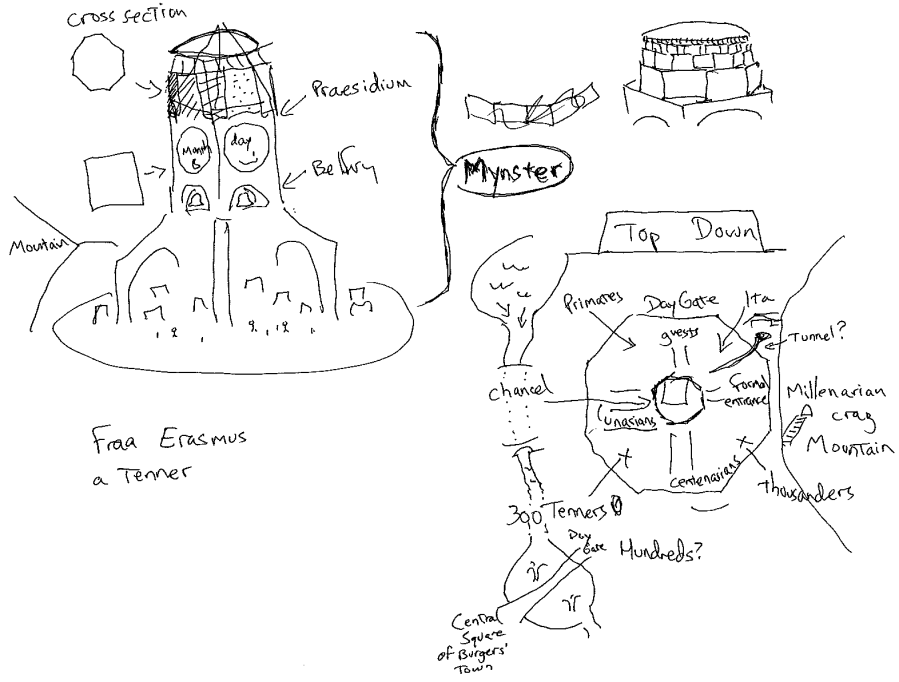 cross section
Praesidium
Month
day
Belfry
Mynster
Mountain
Top Down
Primates
DayGate
Ita
guests
Tunnel?
chancel
formal
entrance
Lunarians
Millenarian
crag
Mountain
Centenarians
Thousanders
Fraa Erasmus
a Tenner
300 Tenners
Day
Gate
Hundreds?
Central
Square
of Burgers'
Town